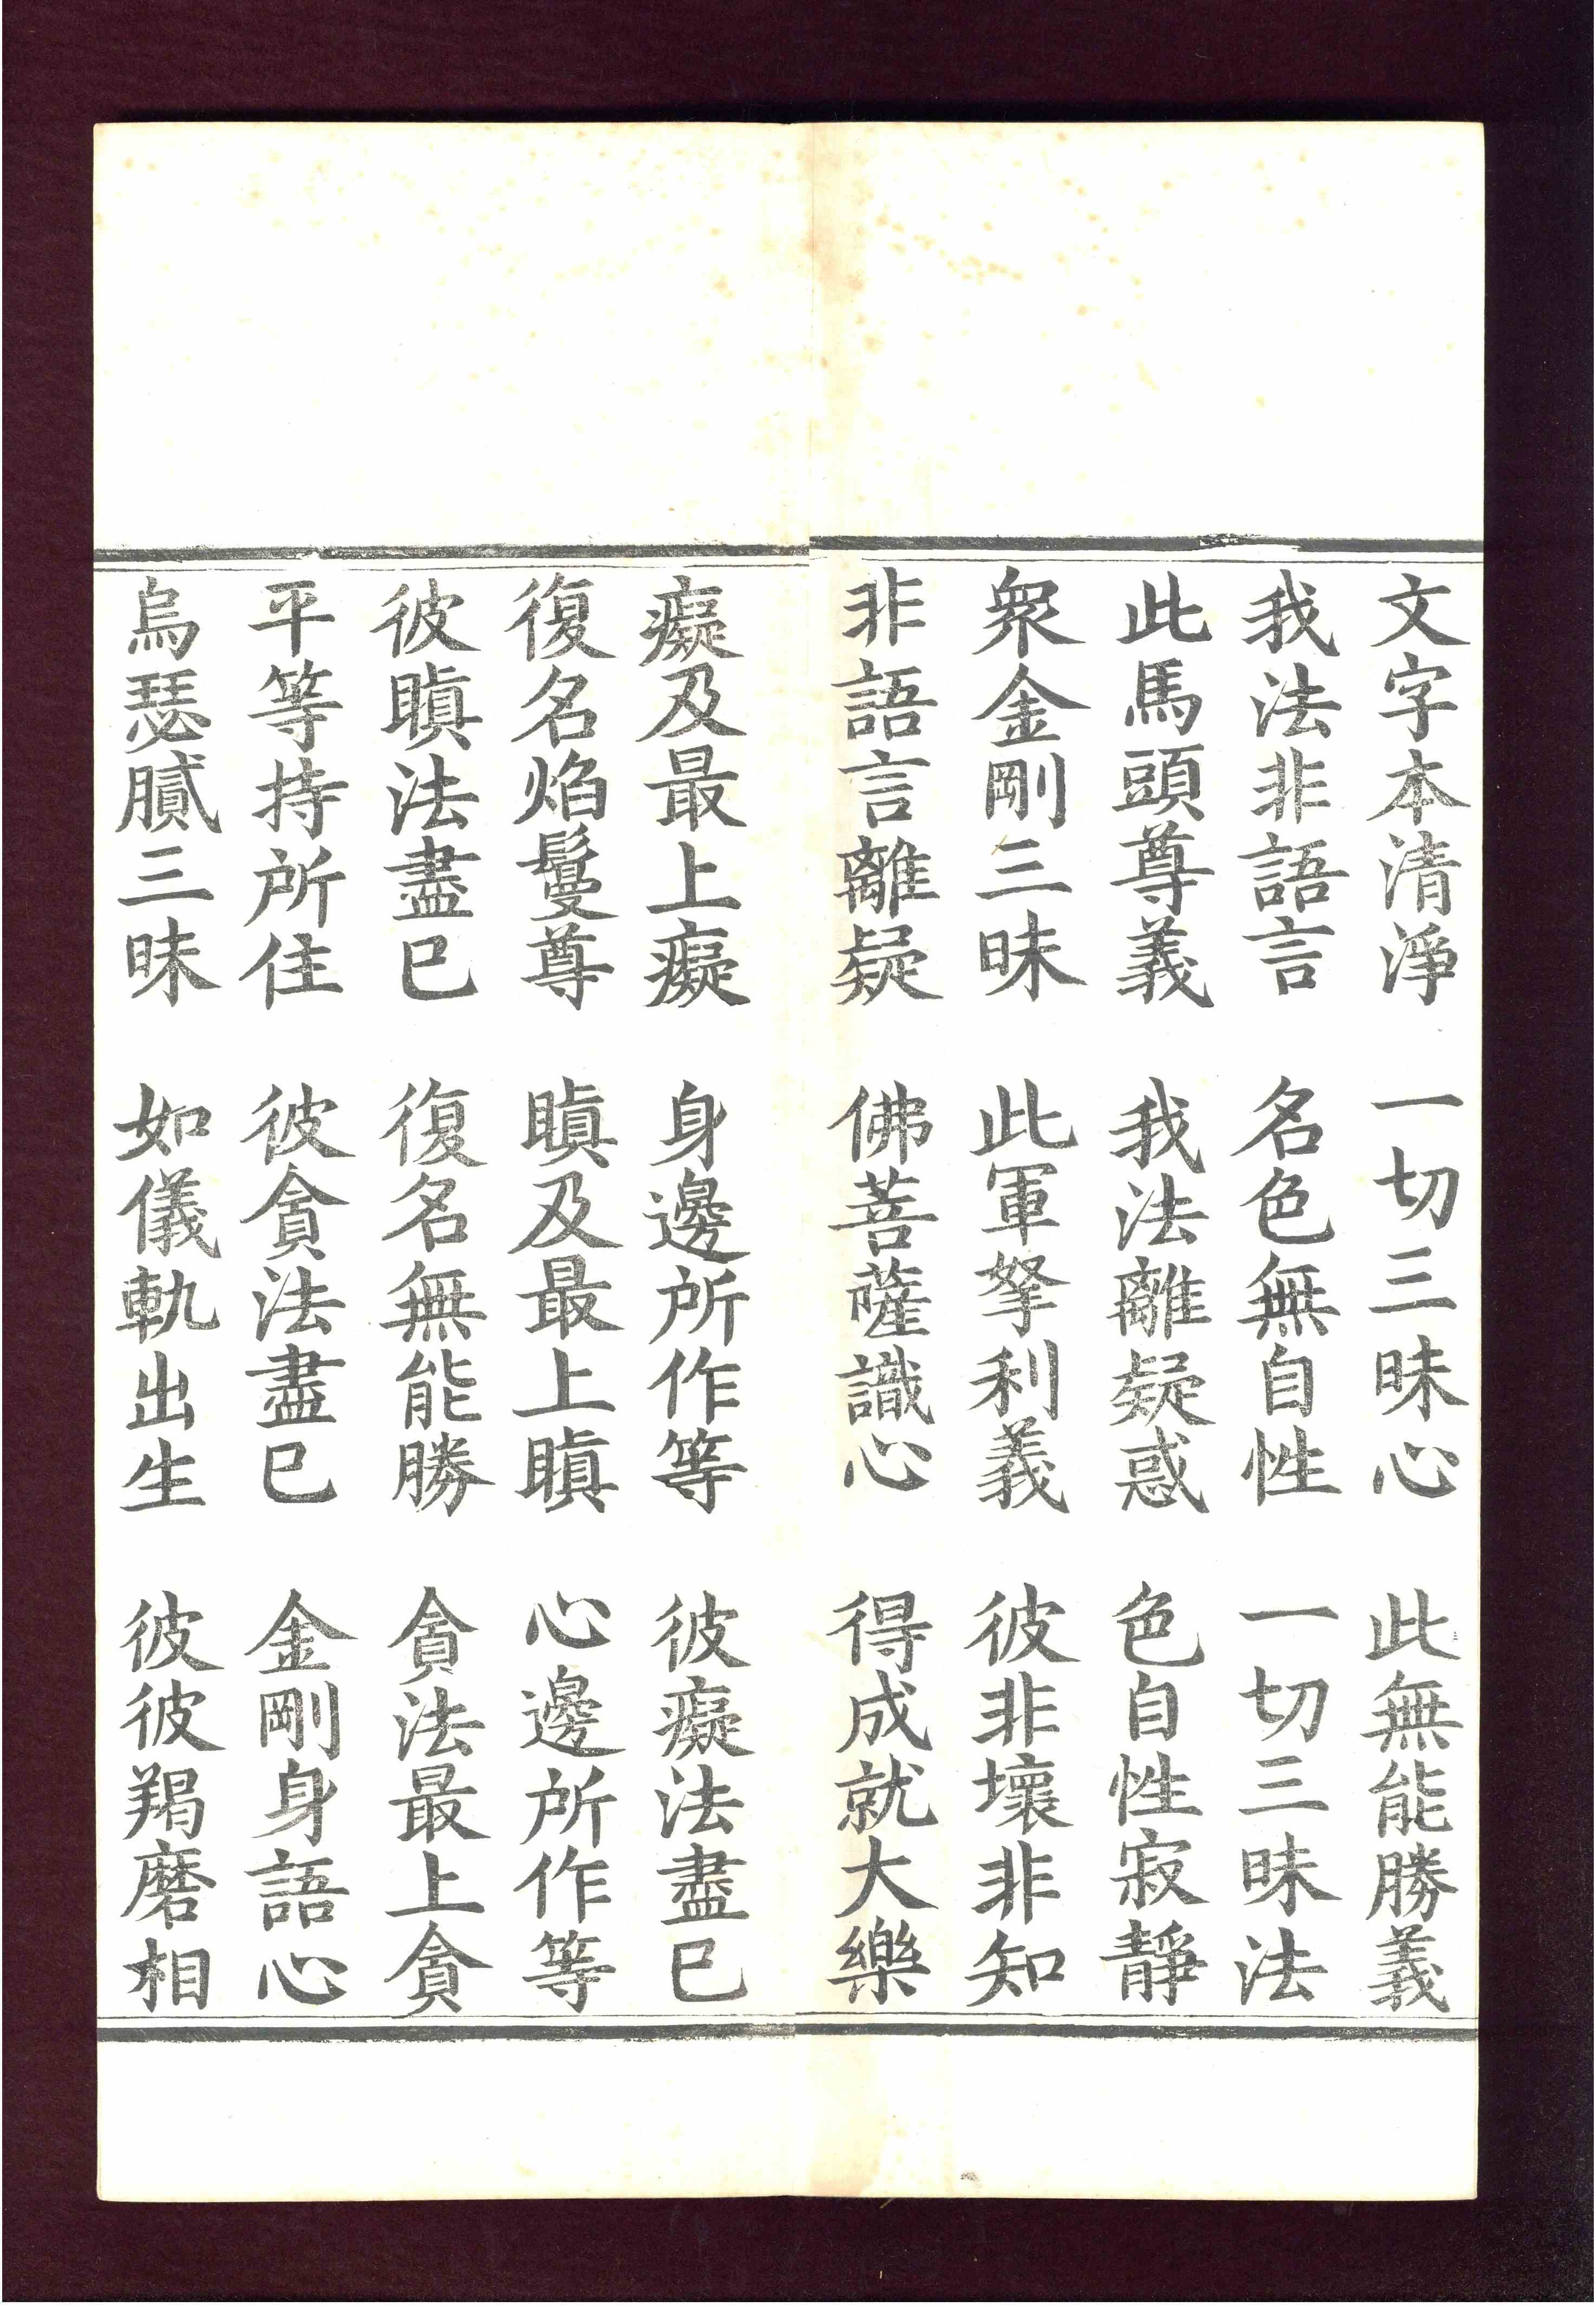 文字本清淨　一切三昧心　此無能勝義
我法非語言　名色無自性　一切三昧法
此馬頭尊義　我法離疑惑　色自性寂靜
衆金剛三昧　此軍拏利義　彼非壞非知
非語言離疑　佛菩薩識心　得成就大樂
癡及最上癡　身邊所作等　彼癡法盡已
復名焰鬘尊　瞋及最上瞋　心邊所作等
彼瞋法盡已　復名無能勝　貪法最上貪
平等持所住　彼貪法盡已　金剛身語心
烏瑟膩三昧　如儀軌出生　彼彼羯磨相